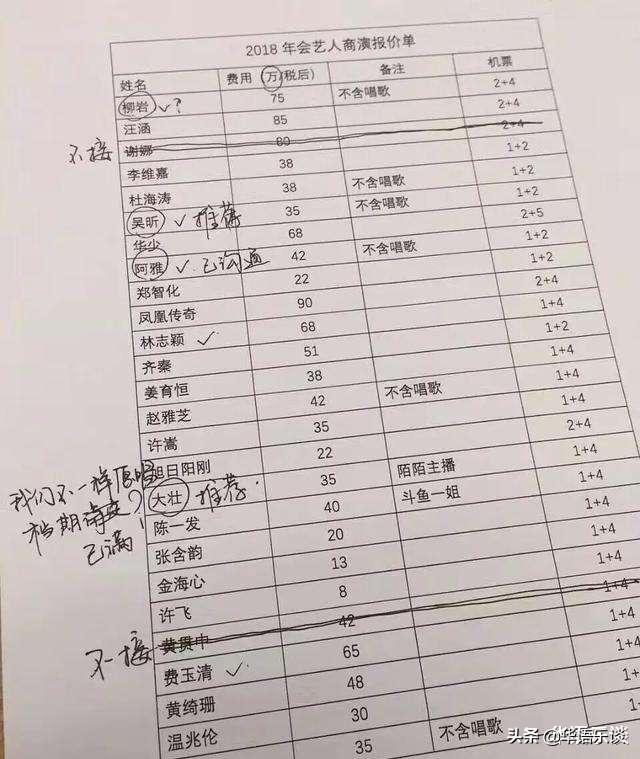 2018 年会艺人商演报价单
姓名 费用 万(税后) 备注 机票
柳岩 ✓? 75 不含唱歌 2+4
汪涵 85 2+4
不接 谢娜 80 2+4
李维嘉 38 1+2
杜海涛 38 不含唱歌 1+2
吴昕 ✓推荐 35 不含唱歌 1+2
华少 68 2+5
阿雅 ✓已沟通 42 不含唱歌 1+2
郑智化 22 1+2
凤凰传奇 90 2+4
林志颖 ✓ 68 1+4
齐秦 51 1+2
姜育恒 38 1+4
赵雅芝 42 不含唱歌 1+4
许嵩 35 1+4
旭日阳刚 22 2+4
我们不一样原唱
大壮 推荐. 35 陌陌主播 1+4
档期
?
已满!
陈一发 40 斗鱼一姐 1+4
张含韵 20 1+4
金海心 13 1+4
许飞 8 1+4
不接 黄贯中 42 1+4
费玉清 ✓ 65 1+4
黄绮珊 48 1+4
温兆伦 30
35 不含唱歌
头条 @华语乐谈